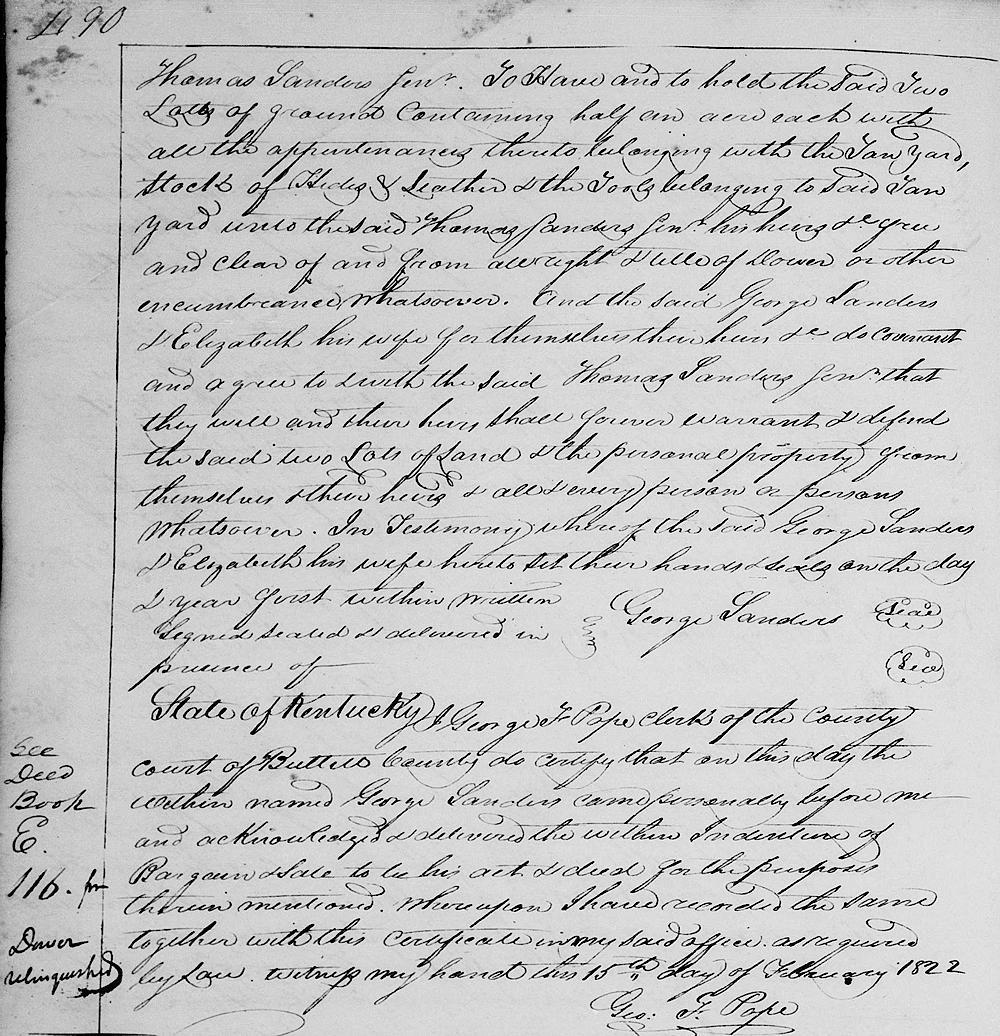 490
Thomas Sanders Senr. To Have and to hold the said Two
Lotts of ground Containing half an acre each with
all the appurtenances thereto belonging with the Tan Yard,
Stock of Hides & Leather & the Tools belonging to said Tan
yard unto the said Thomas Sanders Senr. his heirs &c free
and clear of and from all right & title of Dower or other
encumbreance whatsoever. And the said George Sanders
& Elizabeth his wife for themselves their heirs &c do covenant
and agree to & with the said Thomas Sanders Senr. that
they will and their heirs shall forever warrant & defend
the said two Lots of Land & the personal property from
themselves & their heirs & all & every person or persons
whatsoever. In Testimony whereof the said George Sanders
& Elizabeth his wife hereto set their hands & seals on the day
& year first within written
George Sanders Seal
Signed sealed & delivered in
presence of
Seal
State of Kentucky I George F Pope clerk of the County
court of Butler County do certify that on this day the
within named George Sanders came personally before me
and acknowledged & delivered the within Indenture of
Bargain & Sale to be his act & deed for the purposes
therein mentioned. Whereupon I have recorded the same
together with this certificate in my said office as required
by Law. witness my hand this 15th day of February 1822
Geo: F. Pope
See
Deed
Book
E.
116. for
Dower
relinquished